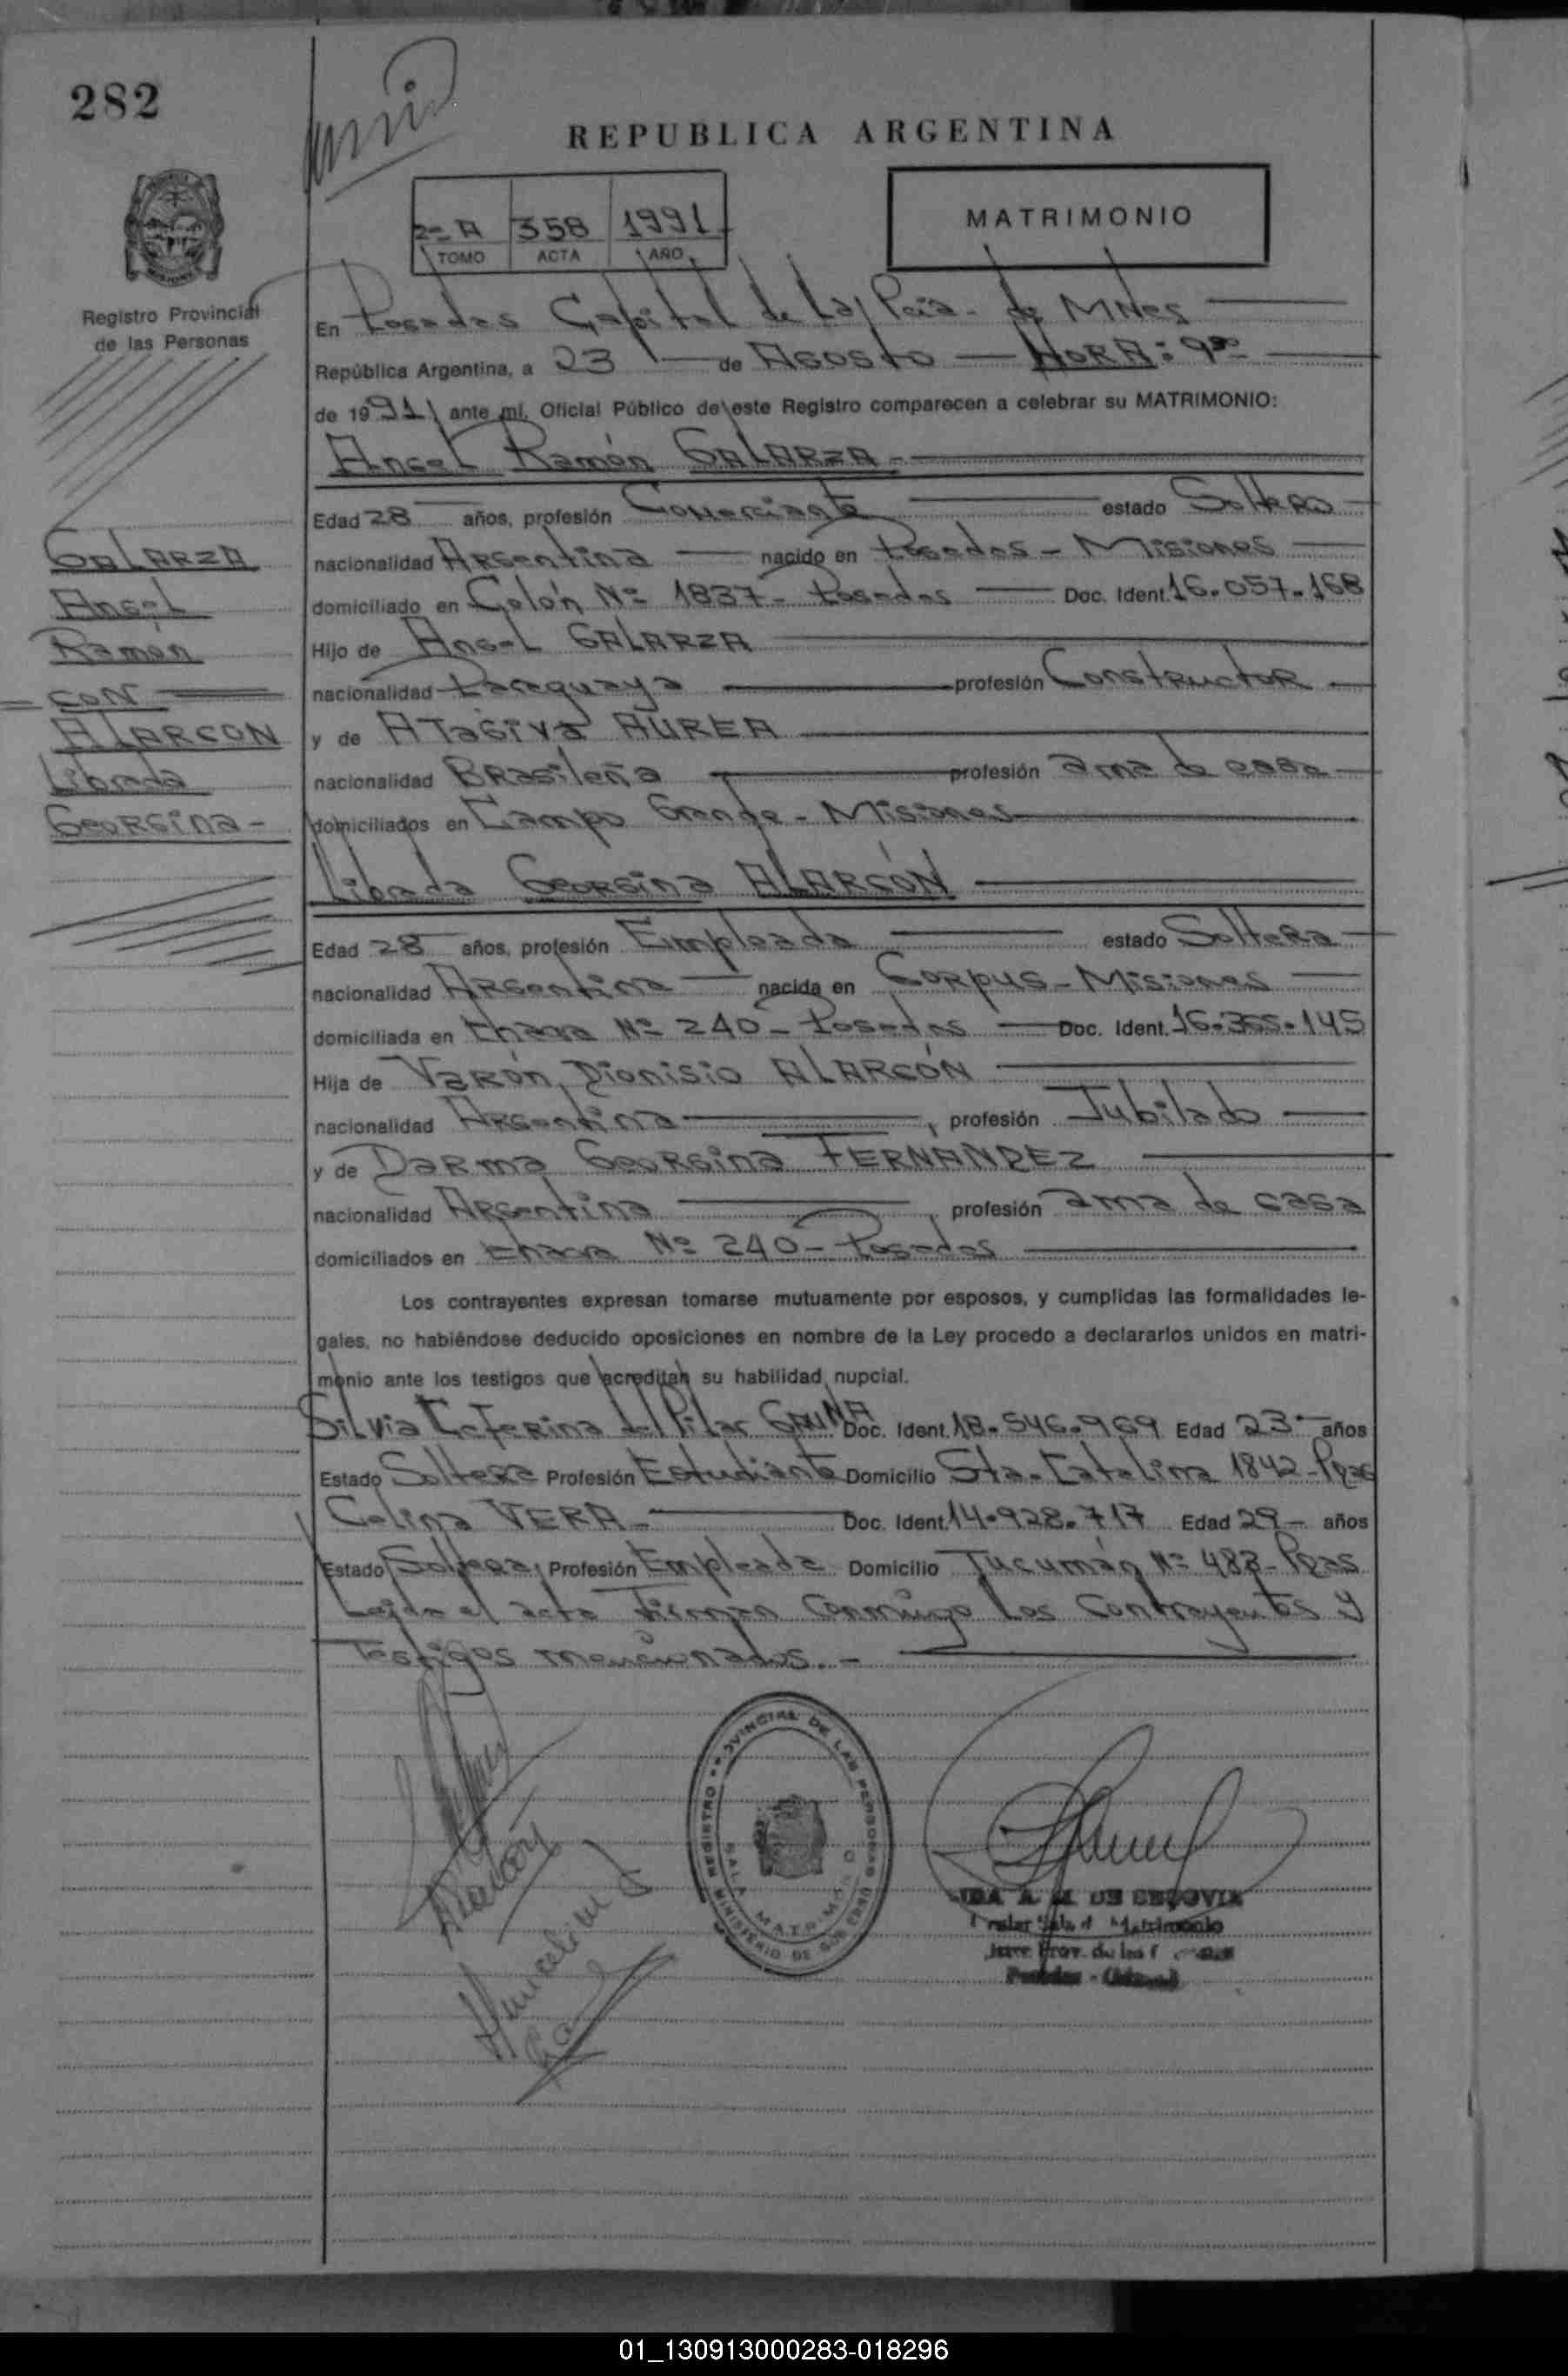 282
REPUBLICA ARGENTINA
2ºA 358 1991
TOMO ACTA AÑO
MATRIMONIO
Registro Provincial
de las Personas
En Posadas Capital de La Pcia. de MNes
República Argentina, a 23 de Agosto HORA: 9
de 1991 ante mí, Oficial Público de este Registro comparecen a celebrar su MATRIMONIO:
Angel Ramón GALARZA.-
GALARZA
Angel
Ramón
= CON =
ALARCON
Librada
Georgina-
Edad 28 años, profesión Comerciante estado Soltero
nacionalidad Argentina nacido en Posadas - Misiones
domiciliado en Colón Nº 1837- Posadas Doc. Ident. 16.057.168
Hijo de Angel GALARZA
nacionalidad Paraguaya profesión Constructor
y de AUREA
nacionalidad Brasileña profesión ama de casa
domiciliados en Campo Grande - Misiones
Librada Georgina ALARCÓN
Edad 28 años, profesión Empleada estado Soltera
nacionalidad Argentina nacida en Corpus - Misiones
domiciliada en Nº 240 - Posadas Doc. Ident. 16.365.145
Hija de Varón Dionisio ALARCÓN
nacionalidad Argentina, profesión Jubilado
y de Darma Georgina FERNÁNDEZ
nacionalidad Argentina, profesión ama de casa
domiciliados en Nº 240 - Posadas
Los contrayentes expresan tomarse mutuamente por esposos, y cumplidas las formalidades le-
gales, no habiéndose deducido oposiciones en nombre de la Ley procedo a declararlos unidos en matri-
monio ante los testigos que acreditan su habilidad nupcial.
Silvia Ceferina del Pilar GAUNA Doc. Ident. 18.546.969 Edad 23 años
Estado Soltera Profesión Estudiante Domicilio Sta. Catalina 1842 - Pdas
Celina VERA Doc. Ident. 14.928.717 Edad 29 - años
Estado Soltera Profesión Empleada Domicilio Tucumán Nº 483 - Pdas
Leída el acta firman conmigo los Contrayentes y
Testigos mencionados.-
REGISTRO PROVINCIAL DE LAS PERSONAS
SALA MATRIMONIO
MINISTERIO DE GOBIERNO
A. M. DE SEGOVIA
Matrimonio
Posadas
01_130913000283-018296